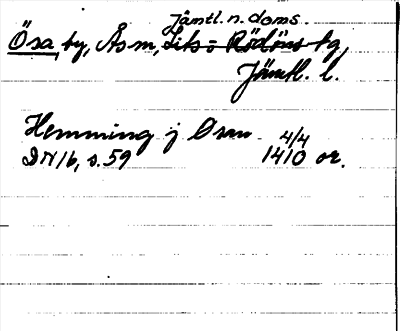 Jämtl. n. doms.
Ösa, by, Ås sn, Lits o Rödöns tg,
Jämtl. l.
Hemming j Osom 4/4
DN 16, s. 59 1410 or.